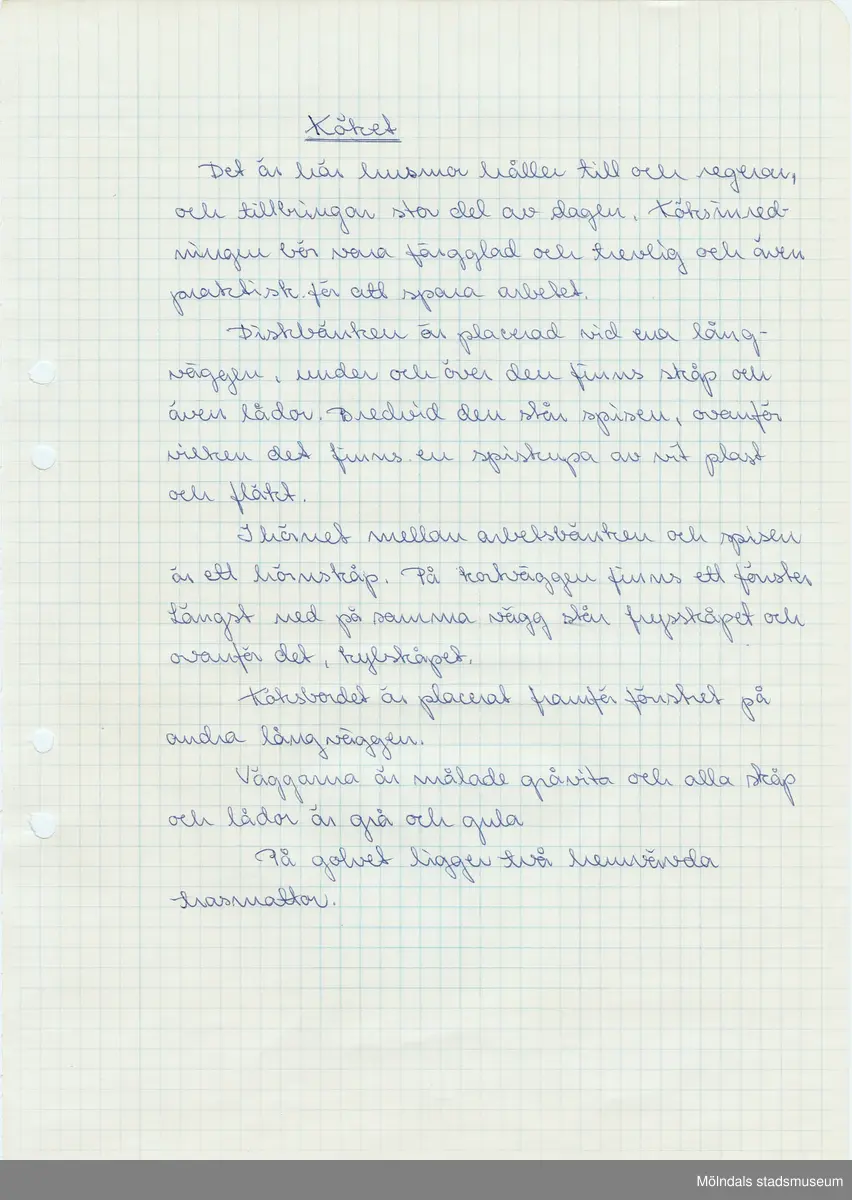 Köket
Det är här husmor håller till och regerar,
och tillbringar stor del av dagen. Köksinred-
ningen bör vara färgglad och trevlig och även
praktisk för att spara arbetet.
Diskbänken är placerad vid ena lång-
väggen, under och över den finns skåp och
även lådor. Bredvid den står spisen, ovanför
vilken det finns en spiskupa av vit plast
och fläkt.
I hörnet mellan arbetsbänken och spisen
är ett hörnskåp. På kortväggen finns ett fönster
Längst ned på samma vägg står frysskåpet och
ovanför det, kylskåpet.
Köksbordet är placerat framför fönstret på
andra långväggen.
Väggarna är målade gråvita och alla skåp
och lådor är grå och gula
På golvet ligger två hemvävda
trasmattor.
Mölndals stadsmuseum